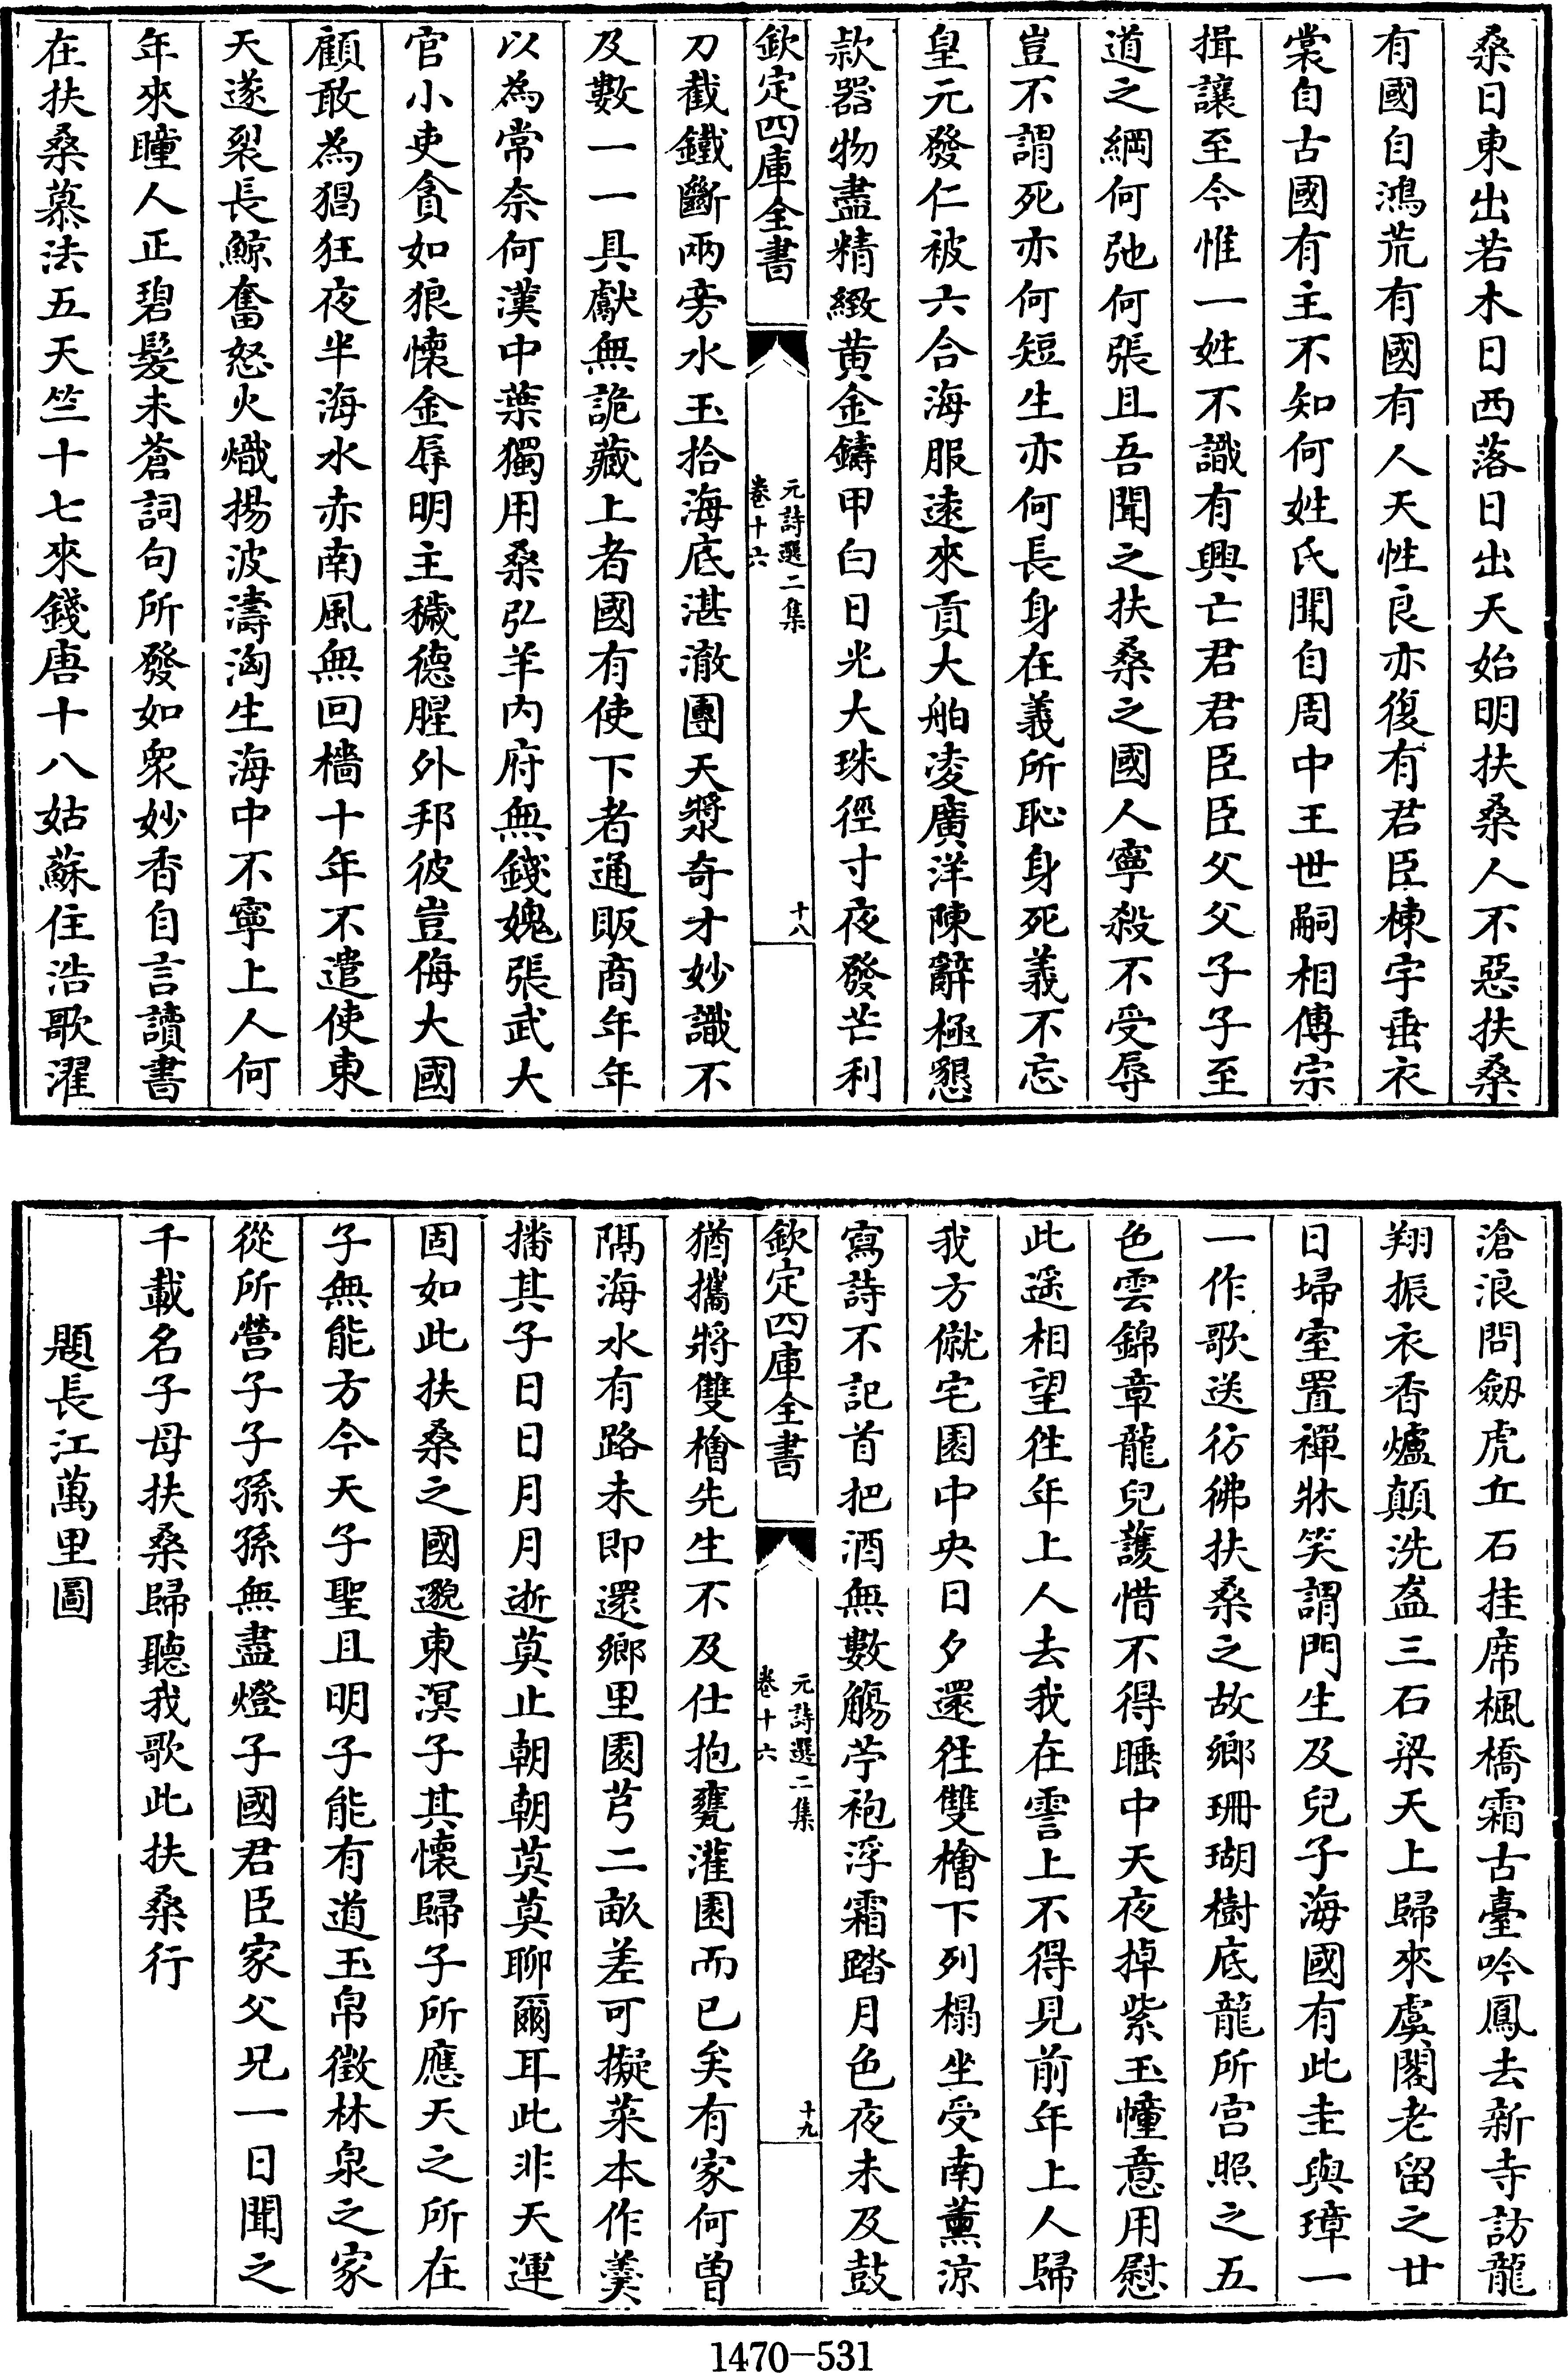 桑日東出若木日西落日出天始明扶桑人不惡扶桑
有國自鴻荒有國有人天性良亦復有君臣棟宇垂衣
裳自古國有主不知何姓氏聞自周中王世嗣相傳宗
揖讓至今惟一姓不識有興亡君君臣臣父父子子至
道之綱何弛何張且吾聞之扶桑之國人寧殺不受辱
豈不謂死亦何短生亦何長身在義所恥身死義不忘
皇元發仁被六合海服遠來貢大舶凌廣洋陳辭極懇
款器物盡精緻黄金鑄甲白日光大珠徑寸夜發芒利
欽定四庫全書
元詩選二集
卷十六
十八
刀截鐵斷兩旁水玉拾海底湛澈團天漿奇才妙識不
及數一一具獻無詭藏上者國有使下者通販商年年
以為常奈何漢中葉獨用桑弘羊内府無錢媿張武大
官小吏貪如狼懷金辱明主穢德腥外邦彼豈侮大國
顧敢為猖狂夜半海水赤南風無回檣十年不遣使東
天遂裂長鯨奮怒火熾揚波濤洶生海中不寧上人何
年來瞳人正碧髮未蒼詞句所發如衆妙香自言讀書
在扶桑慕法五天竺十七來錢唐十八姑蘇住浩歌濯
滄浪問劒虎丘石挂席楓橋霜古臺吟鳳去新寺訪龍
翔振衣香爐顛洗盋三石梁天上歸來虞閣老留之廿
日埽室置禪牀笑謂門生及兒子海國有此圭與璋一
一作歌送彷彿扶桑之故鄉珊瑚樹底龍所宫照之五
色雲錦章龍兒護惜不得睡中天夜掉紫玉幢意用慰
此遥相望往年上人去我在霅上不得見前年上人歸
我方僦宅園中央日夕還往雙檜下列榻坐受南薫涼
寫詩不記首把酒無數觴苧袍浮霜踏月色夜未及鼓
欽定四庫全書
元詩選二集
卷十六
十九
猶攜將雙檜先生不及仕抱甕灌園而已矣有家何曾
隔海水有路未即還鄉里園芎二畝差可擬菜本作羹
播其子日日月月逝莫止朝朝莫莫聊爾耳此非天運
固如此扶桑之國邈東溟子其懷歸子所應天之所在
子無能方今天子聖且明子能有道玉帛徵林泉之家
從所營子子孫孫無盡燈子國君臣家父兄一日聞之
千載名子母扶桑歸聽我歌此扶桑行
題長江萬里圖
1470-531